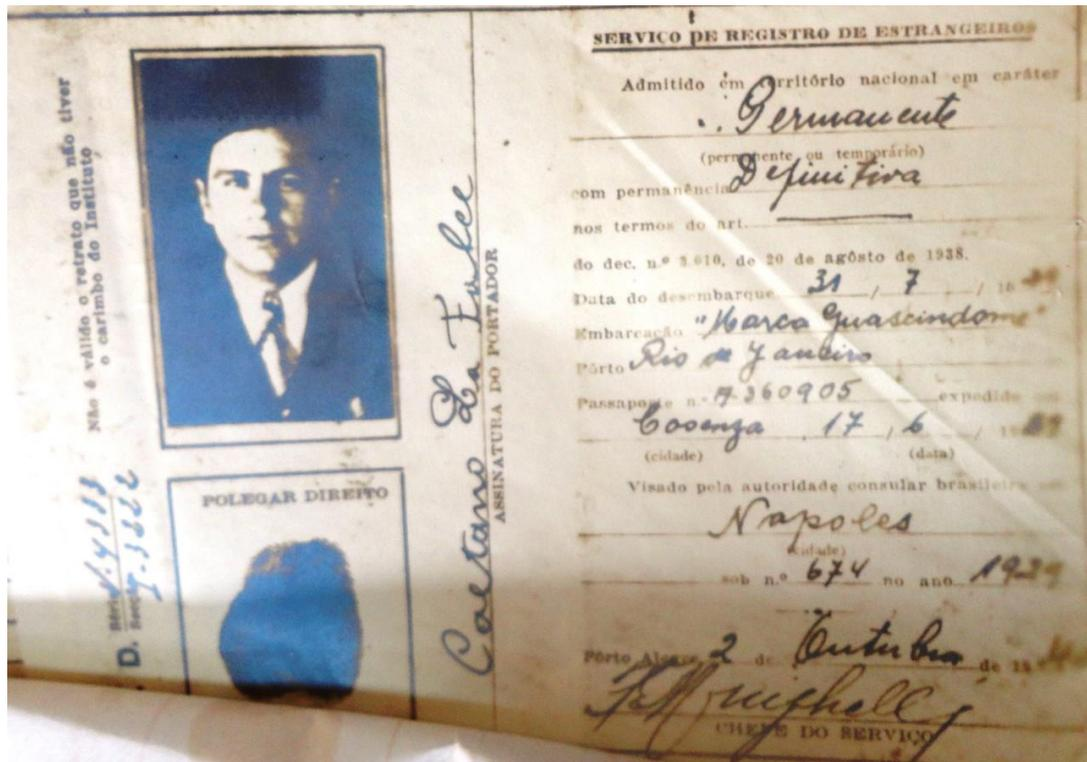 Não é válido o retrato que não tiver
o carimbo do Instituto
D.
Série
Secção
POLEGAR DIREITO
Caetano La Falce
ASSINATURA DO PORTADOR
SERVIÇO DE REGISTRO DE ESTRANGEIROS
Admitido em território nacional em caráter
Permanente
(permanente ou temporário)
com permanência Definitiva
nos termos do art.
do dec. n.º 3.010, de 20 de agôsto de 1938.
Data do desembarque 31 / 7 / 19
Embarcação
Pôrto Rio de Janeiro
Passaporte n.º 360905 expedido em
Cosenza, 17 / 6 / 19
(cidade) (data)
Visado pela autoridade consular brasileira em
Napoles
(cidade)
sob n.º 674 no ano 1929
Pôrto Alegre 2 de Outubro de 19
CHEFE DO SERVIÇO